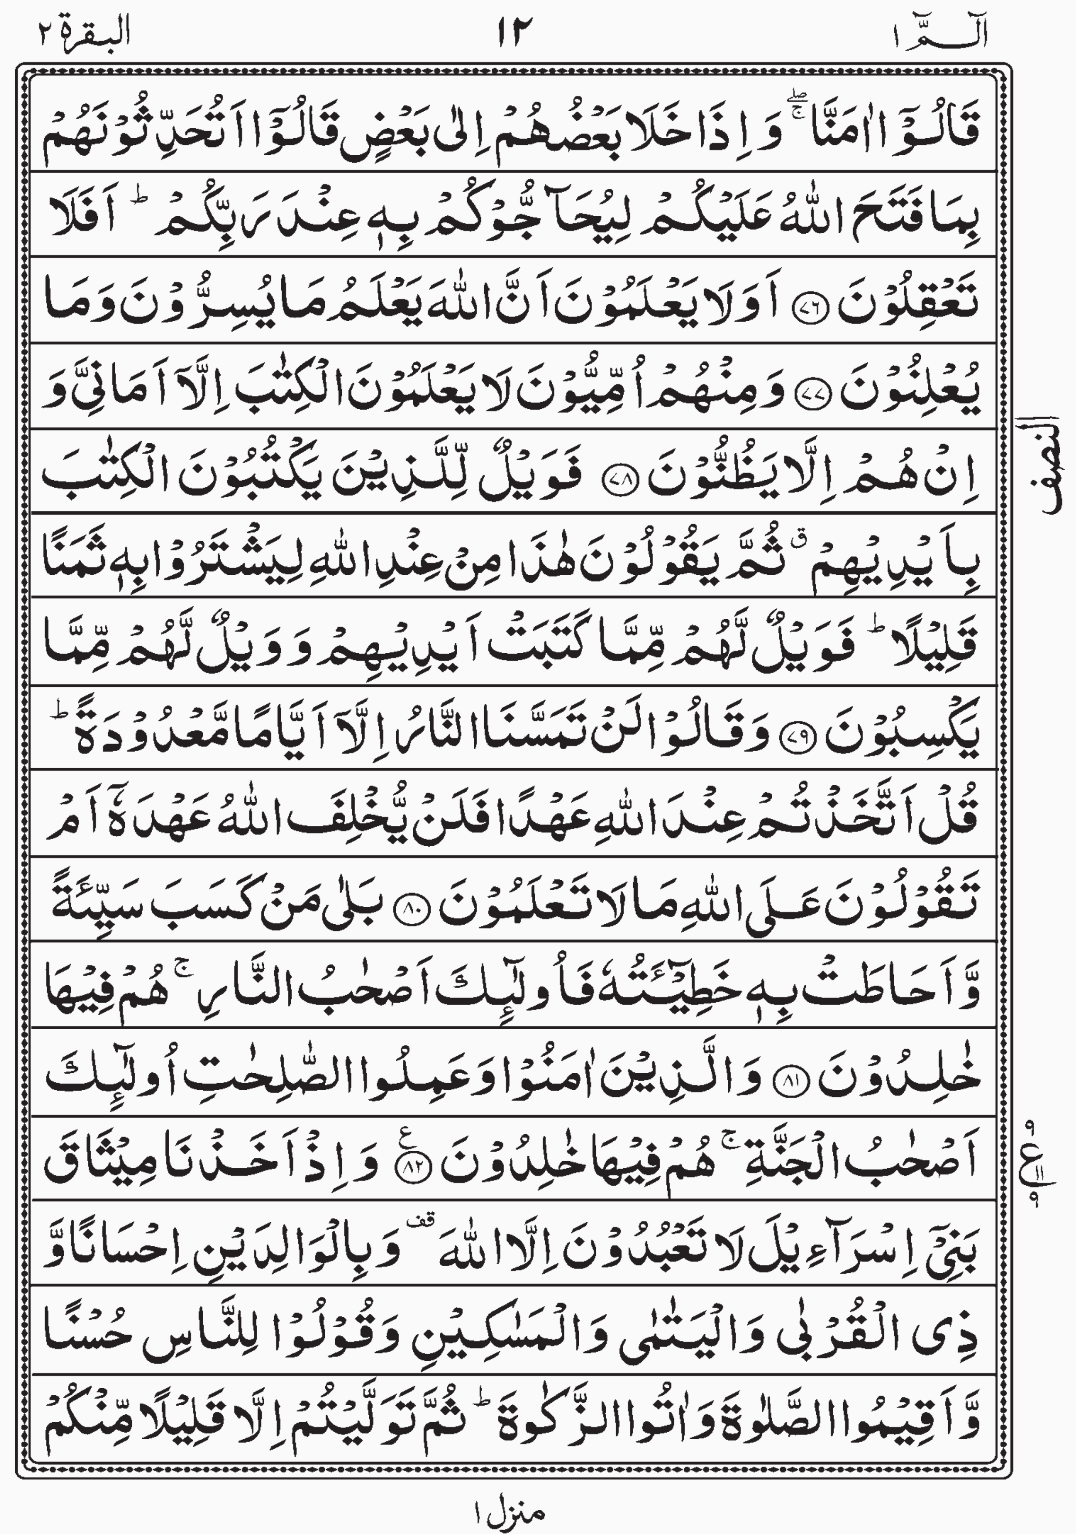 الٓمّٓ ١
١٢
البقرة ٢
قَالُوْۤا اٰمَنَّا ۖۚ وَ اِذَا خَلَا بَعْضُهُمْ اِلٰى بَعْضٍ قَالُوْۤا اَتُحَدِّثُوْنَهُمْ
بِمَا فَتَحَ اللّٰهُ عَلَيْكُمْ لِيُحَآجُّوْكُمْ بِهٖ عِنْدَ رَبِّكُمْ ؕ اَفَلَا
تَعْقِلُوْنَ ﴿٧٦﴾ اَوَلَا يَعْلَمُوْنَ اَنَّ اللّٰهَ يَعْلَمُ مَا يُسِرُّوْنَ وَمَا
يُعْلِنُوْنَ ﴿٧٧﴾ وَمِنْهُمْ اُمِّيُّوْنَ لَا يَعْلَمُوْنَ الْكِتٰبَ اِلَّاۤ اَمَانِىَّ وَ
اِنْ هُمْ اِلَّا يَظُنُّوْنَ ﴿٧٨﴾ فَوَيْلٌ لِّلَّذِيْنَ يَكْتُبُوْنَ الْكِتٰبَ
بِاَيْدِيْهِمْ ۚ ق ثُمَّ يَقُوْلُوْنَ هٰذَا مِنْ عِنْدِ اللّٰهِ لِيَشْتَرُوْا بِهٖ ثَمَنًا
قَلِيْلًا ؕ فَوَيْلٌ لَّهُمْ مِّمَّا كَتَبَتْ اَيْدِيْهِمْ وَ وَيْلٌ لَّهُمْ مِّمَّا
يَكْسِبُوْنَ ﴿٧٩﴾ وَقَالُوْا لَنْ تَمَسَّنَا النَّارُ اِلَّاۤ اَيَّامًا مَّعْدُوْدَةً ؕ
قُلْ اَتَّخَذْتُمْ عِنْدَ اللّٰهِ عَهْدًا فَلَنْ يُّخْلِفَ اللّٰهُ عَهْدَهٗۤ اَمْ
تَقُوْلُوْنَ عَلَى اللّٰهِ مَا لَا تَعْلَمُوْنَ ﴿٨٠﴾ بَلٰى مَنْ كَسَبَ سَيِّئَةً
وَّاَحَاطَتْ بِهٖ خَطِيْٓئَتُهٗ فَاُولٰٓئِكَ اَصْحٰبُ النَّارِ ۚ هُمْ فِيْهَا
خٰلِدُوْنَ ﴿٨١﴾ وَالَّذِيْنَ اٰمَنُوْا وَعَمِلُوا الصّٰلِحٰتِ اُولٰٓئِكَ
اَصْحٰبُ الْجَنَّةِ ۚ هُمْ فِيْهَا خٰلِدُوْنَ ﴿٨٢﴾ ع وَ اِذْ اَخَذْنَا مِيْثَاقَ
بَنِىْۤ اِسْرَآءِيْلَ لَا تَعْبُدُوْنَ اِلَّا اللّٰهَ قف وَبِالْوَالِدَيْنِ اِحْسَانًا وَّ
ذِى الْقُرْبٰى وَالْيَتٰمٰى وَالْمَسٰكِيْنِ وَقُوْلُوْا لِلنَّاسِ حُسْنًا
وَّاَقِيْمُوا الصَّلٰوةَ وَاٰتُوا الزَّكٰوةَ ؕ ثُمَّ تَوَلَّيْتُمْ اِلَّا قَلِيْلًا مِّنْكُمْ
النصف
ع
منزل ١